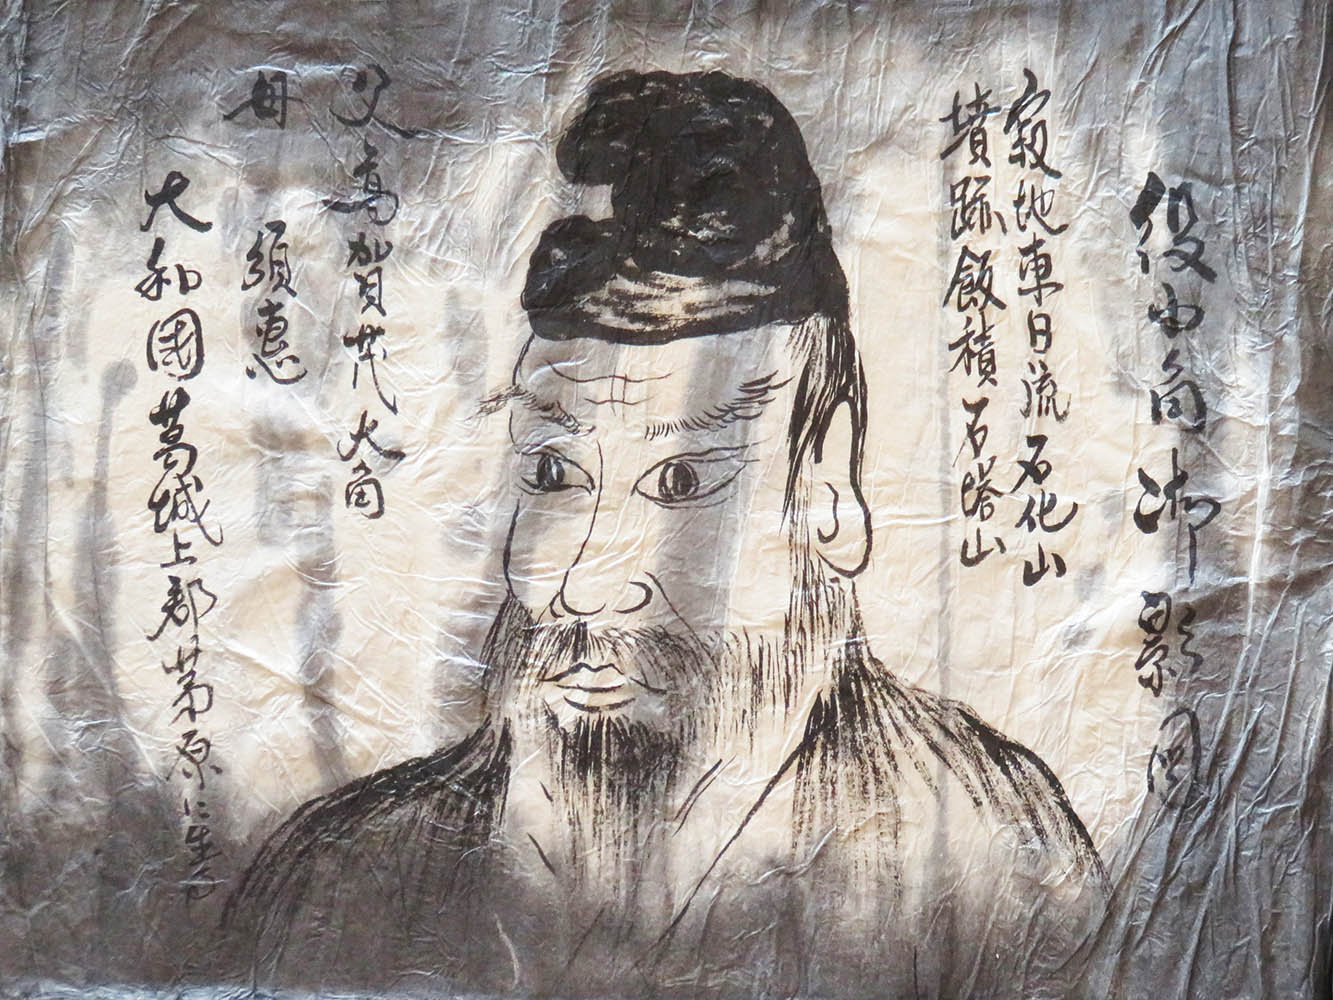 役小角御影図
寂地東日流石化山
墳跡飯積石塔山
父高賀茂大角
母 須恵
大和國葛城上郡茅原に生る